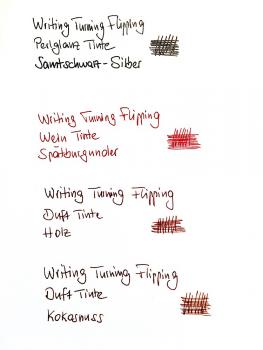 Writing Turning Flipping
Perlglanz Tinte
Samtschwarz - Silber
Writing Turning Flipping
Wein Tinte
Spätburgunder
Writing Turning Flipping
Duft Tinte
Holz
Writing Turning Flipping
Duft Tinte
Kokosnuss